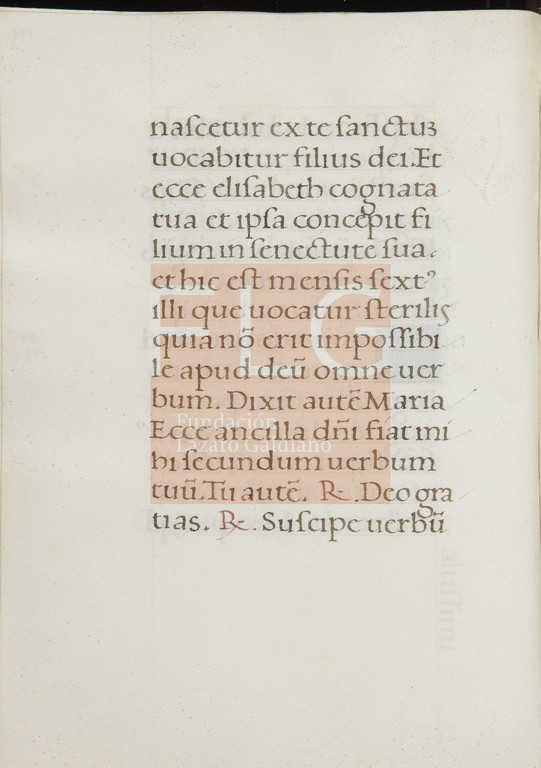 naſcetur ex te ſanctuꝫ
uocabitur filius dei. Et
ecce eliſabeth cognata
tua et ipſa concepit fi
lium in ſenectute ſua.
et hic eſt menſis ſextꝰ
illi que uocatur ſterilis
quia nō erit impoſſibi
le apud deū omne uer
bum. Dixit autē Maria
Ecce ancilla dn̄i fiat mi
hi ſecundum uerbum
tuū. Tu autē. ℟. Deo gra
tias. ℟. Suſcipe uerbū
FLG
Fundación
Lázaro Galdiano